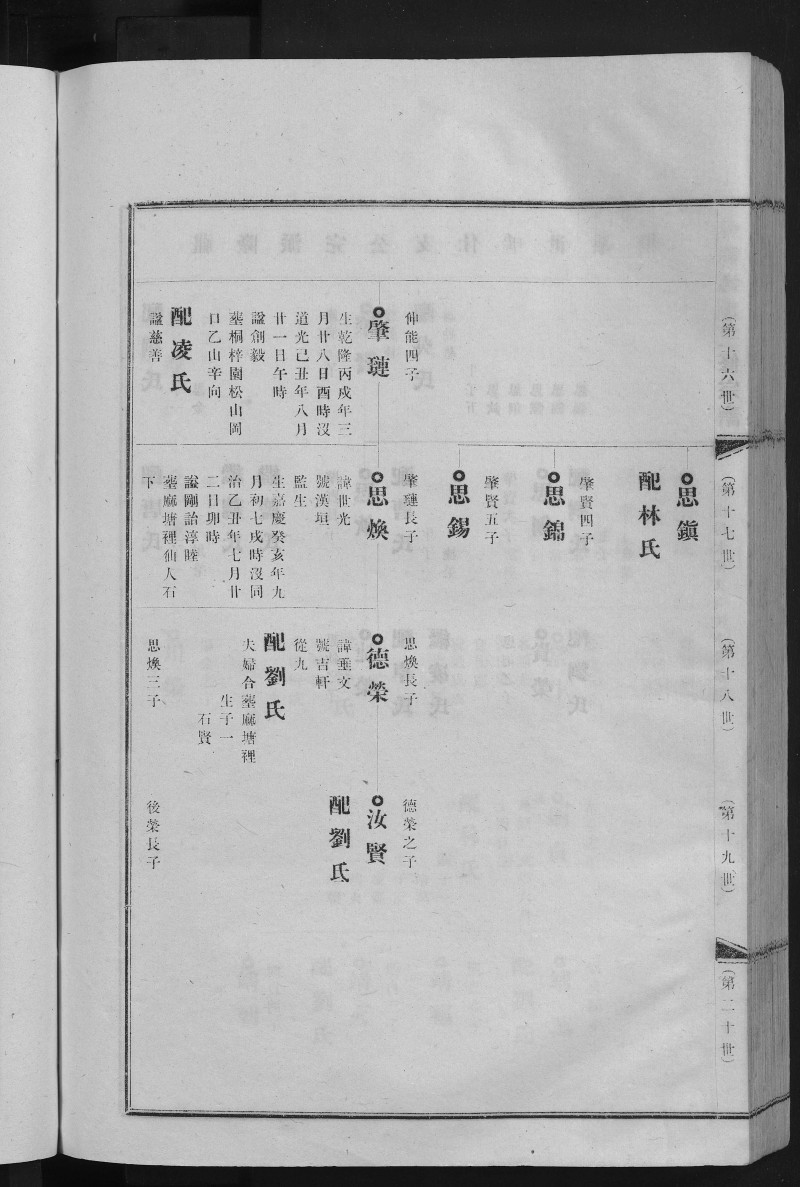 (第十六世)
伸能四子
肇璉
生乾隆丙戌年三
月廿八日酉時沒
道光己丑年八月
廿一日午時
諡創毅
塟桐梓園松山岡
口乙山辛向
配凌氏
諡慈善
(第十七世)
思鎭
配林氏
肇賢四子
思錦
肇賢五子
思錫
肇璉長子
思煥
諱世光
號漢垣
監生
生嘉慶癸亥年九
月初七戌時沒同
治乙丑年七月廿
二日卯時
諡剛詒淳睦
塟麻塘裡仙人石
下
(第十八世)
思煥長子
德榮
諱垂文
號吉軒
從九
配劉氏
夫婦合塟麻塘裡
生子一
石賢
思煥三子
(第十九世)
德榮之子
汝賢
配劉氏
後榮長子
(第二十世)